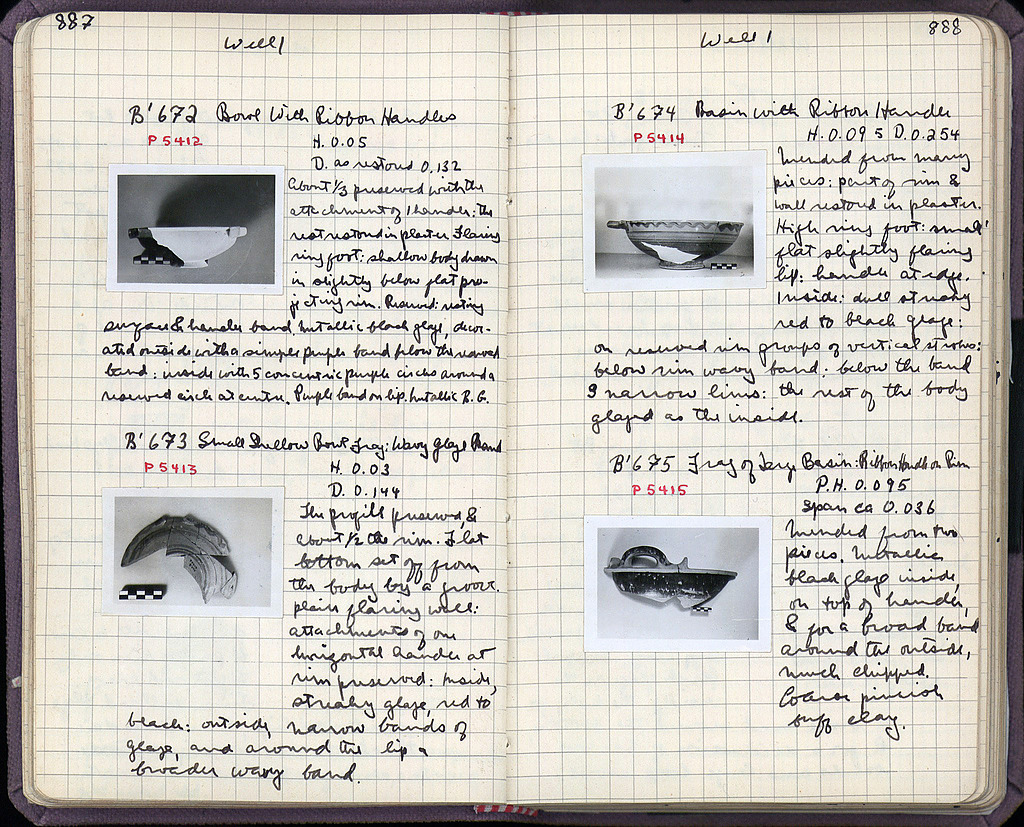 887
Well 1
B' 672 Bowl With Ribbon Handles
P 5412
H. 0.05
D. as restored 0.132
About 1/3 preserved with the
attachment of 1 handle: the
rest restored in plaster. Flaring
ring foot: shallow body drawn
in slightly below flat pro-
jecting rim. Reserved: resting
surface & handle band. Metallic black glaze, decor-
ated outside with a simple purple band below the reserved
band: inside with 5 concentric purple circles around a
reserved circle at centre. Purple band on lip. Metallic B.G.
B' 673 Small Shallow Bowl Frag: Wavy Glaze Band
P 5413
H. 0.03
D. 0.144
The profile preserved, &
about 1/2 the rim. Flat
bottom set off from
the body by a groove.
plain flaring wall:
attachments of one
horizontal handle at
rim preserved: Inside,
streaky glaze, red to
black: outside, narrow bands of
glaze, and around the lip a
broader wavy band.
888
Well 1
B' 674 Basin with Ribbon Handle
P 5414
H. 0.095 D. 0.254
Mended from many
pieces: part of rim &
wall restored in plaster.
High ring foot: small
flat slightly flaring
lip: handle at edge.
Inside: dull streaky
red to black glaze:
on reserved rim groups of vertical strokes:
below rim wavy band: below the band
3 narrow lines: the rest of the body
glazed as the inside.
B' 675 Frag of Large Basin: Ribbon Handle on Rim
P 5415
P.H. 0.095
Span ca 0.036
Mended from two
pieces. Metallic
black glaze inside,
on top of handle,
& for a broad band
around the outside,
much chipped.
Coarse pinkish
buff clay.